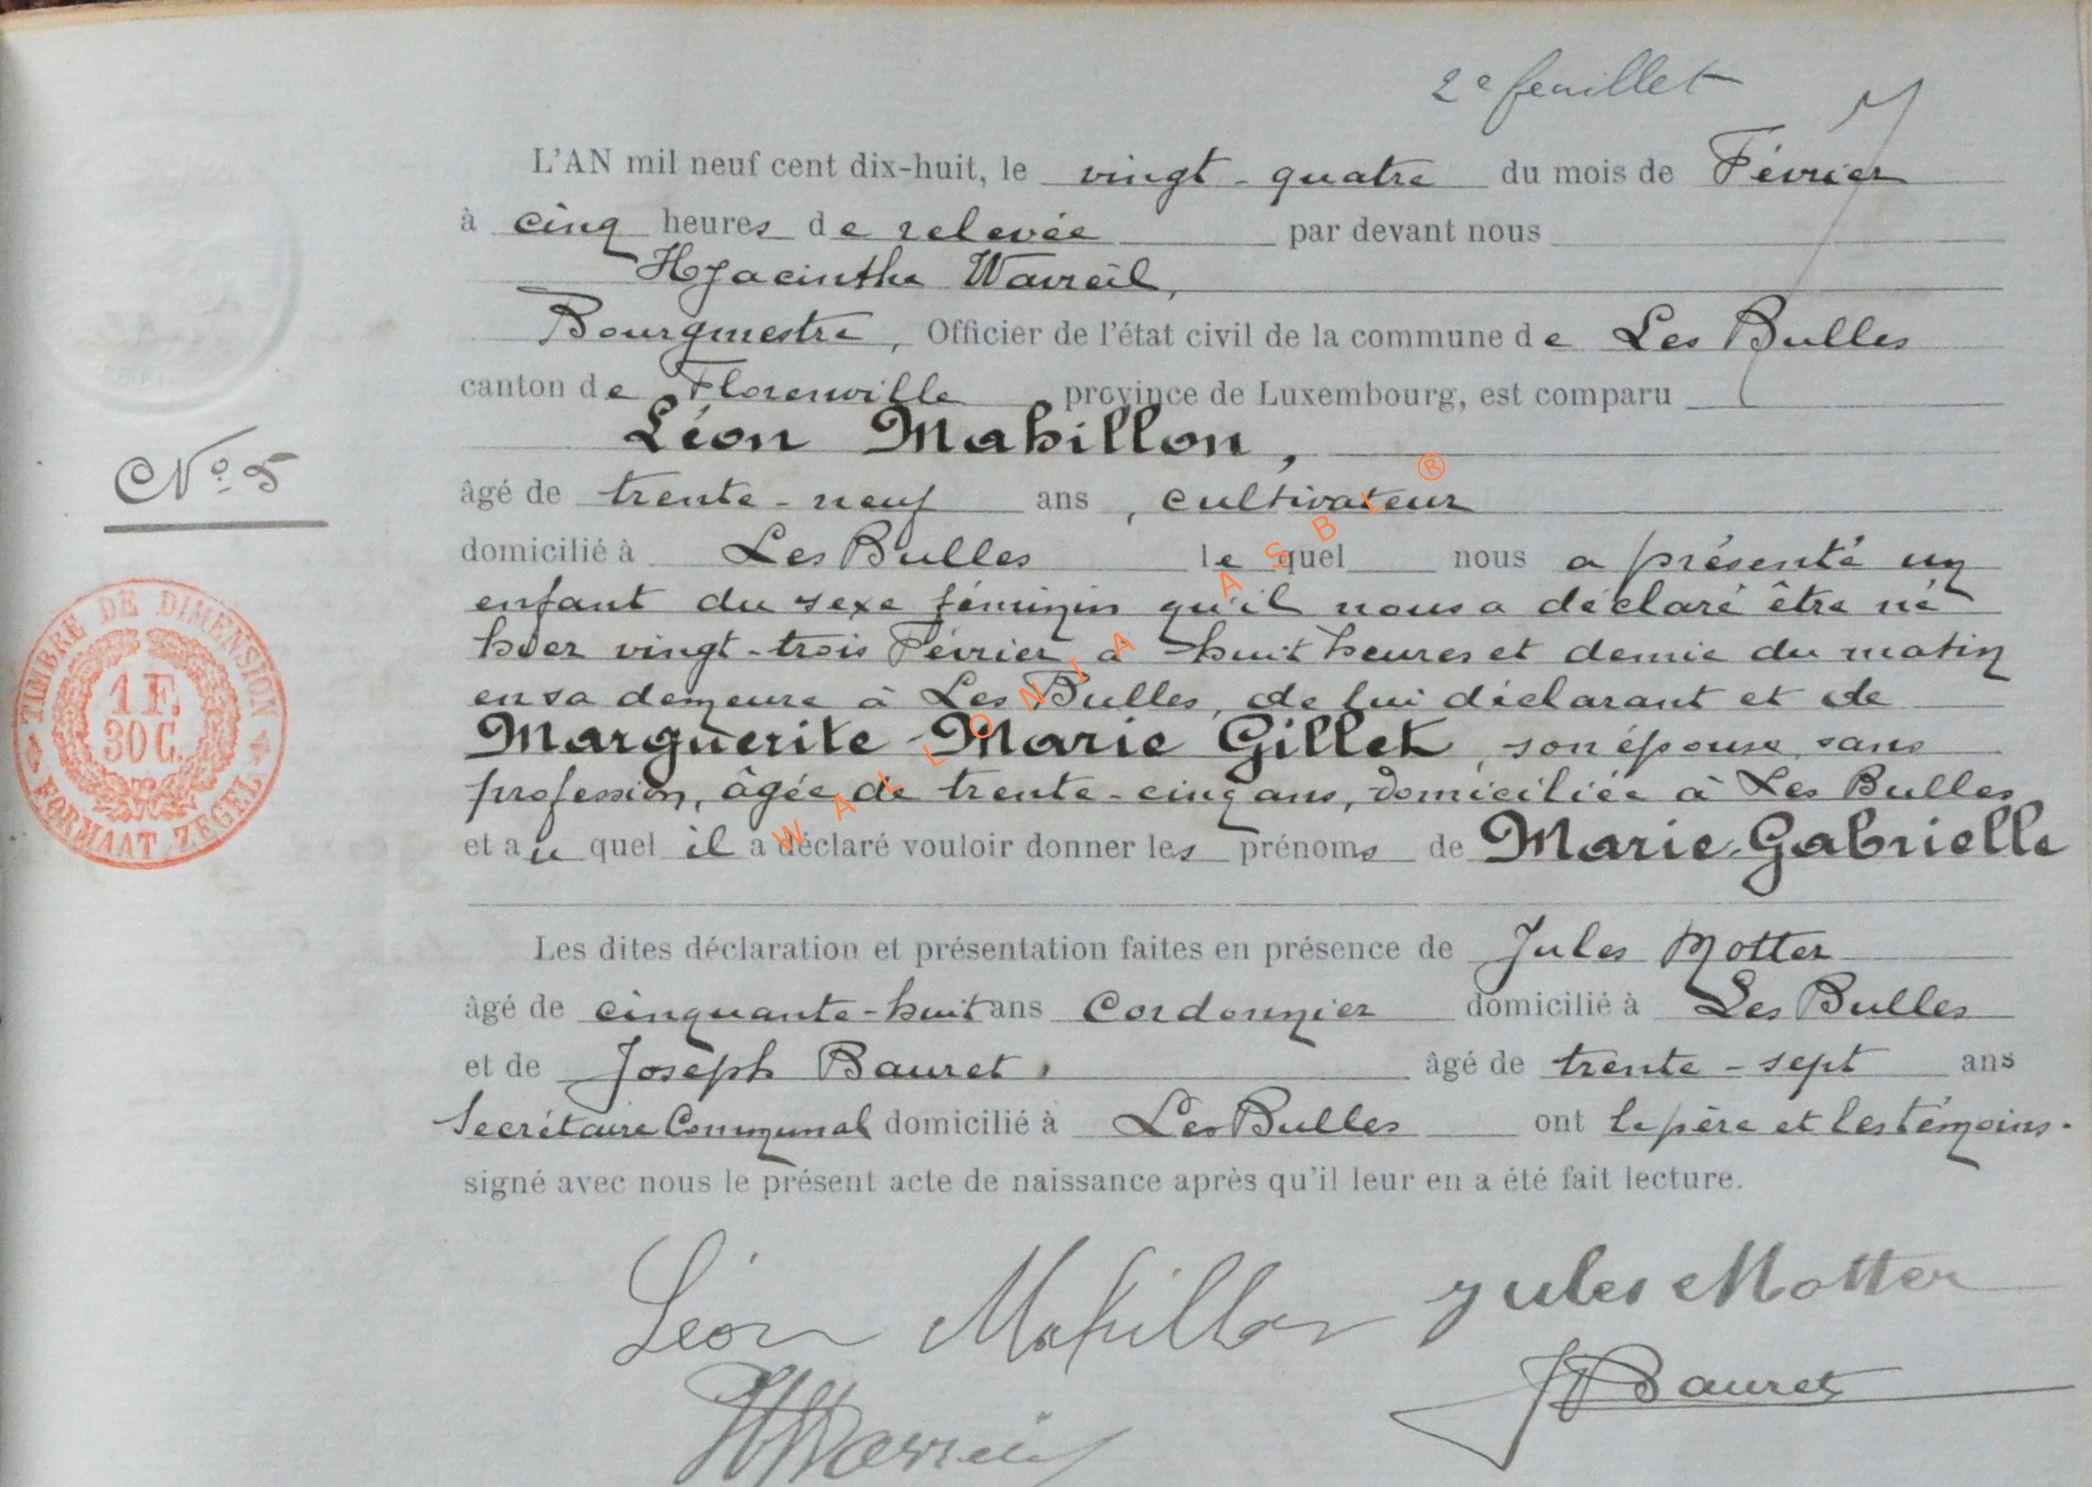 2e feuillet
L'AN mil neuf cent dix-huit, le vingt-quatre du mois de Février
à cinq heures de relevée par devant nous
Hyacinthe Wavreil,
Bourgmestre, Officier de l'état civil de la commune de Les Bulles
canton de Florenville province de Luxembourg, est comparu
Léon Mabillon,
No 5
âgé de trente-neuf ans, cultivateur
domicilié à Les Bulles le quel nous a présenté un
enfant du sexe féminin qu'il nous a déclaré être né
hier vingt-trois Février à huit heures et demie du matin
en sa demeure à Les Bulles, de lui déclarant et de
Marguerite-Marie Gillet, son épouse, sans
profession, âgée de trente-cinq ans, domiciliée à Les Bulles
et au quel il a déclaré vouloir donner les prénoms de Marie-Gabrielle
TIMBRE DE DIMENSION
1 F.
30 C.
FORMAAT ZEGEL
WALLONIA ASBL ®
Les dites déclaration et présentation faites en présence de Jules Motter
âgé de cinquante-huit ans Cordonnier domicilié à Les Bulles
et de Joseph Bauret, âgé de trente-sept ans
Secrétaire Communal domicilié à Les Bulles ont le père et les témoins.
signé avec nous le présent acte de naissance après qu'il leur en a été fait lecture.
Léon Mabillon Jules Motter
J Bauret
H Wavreil